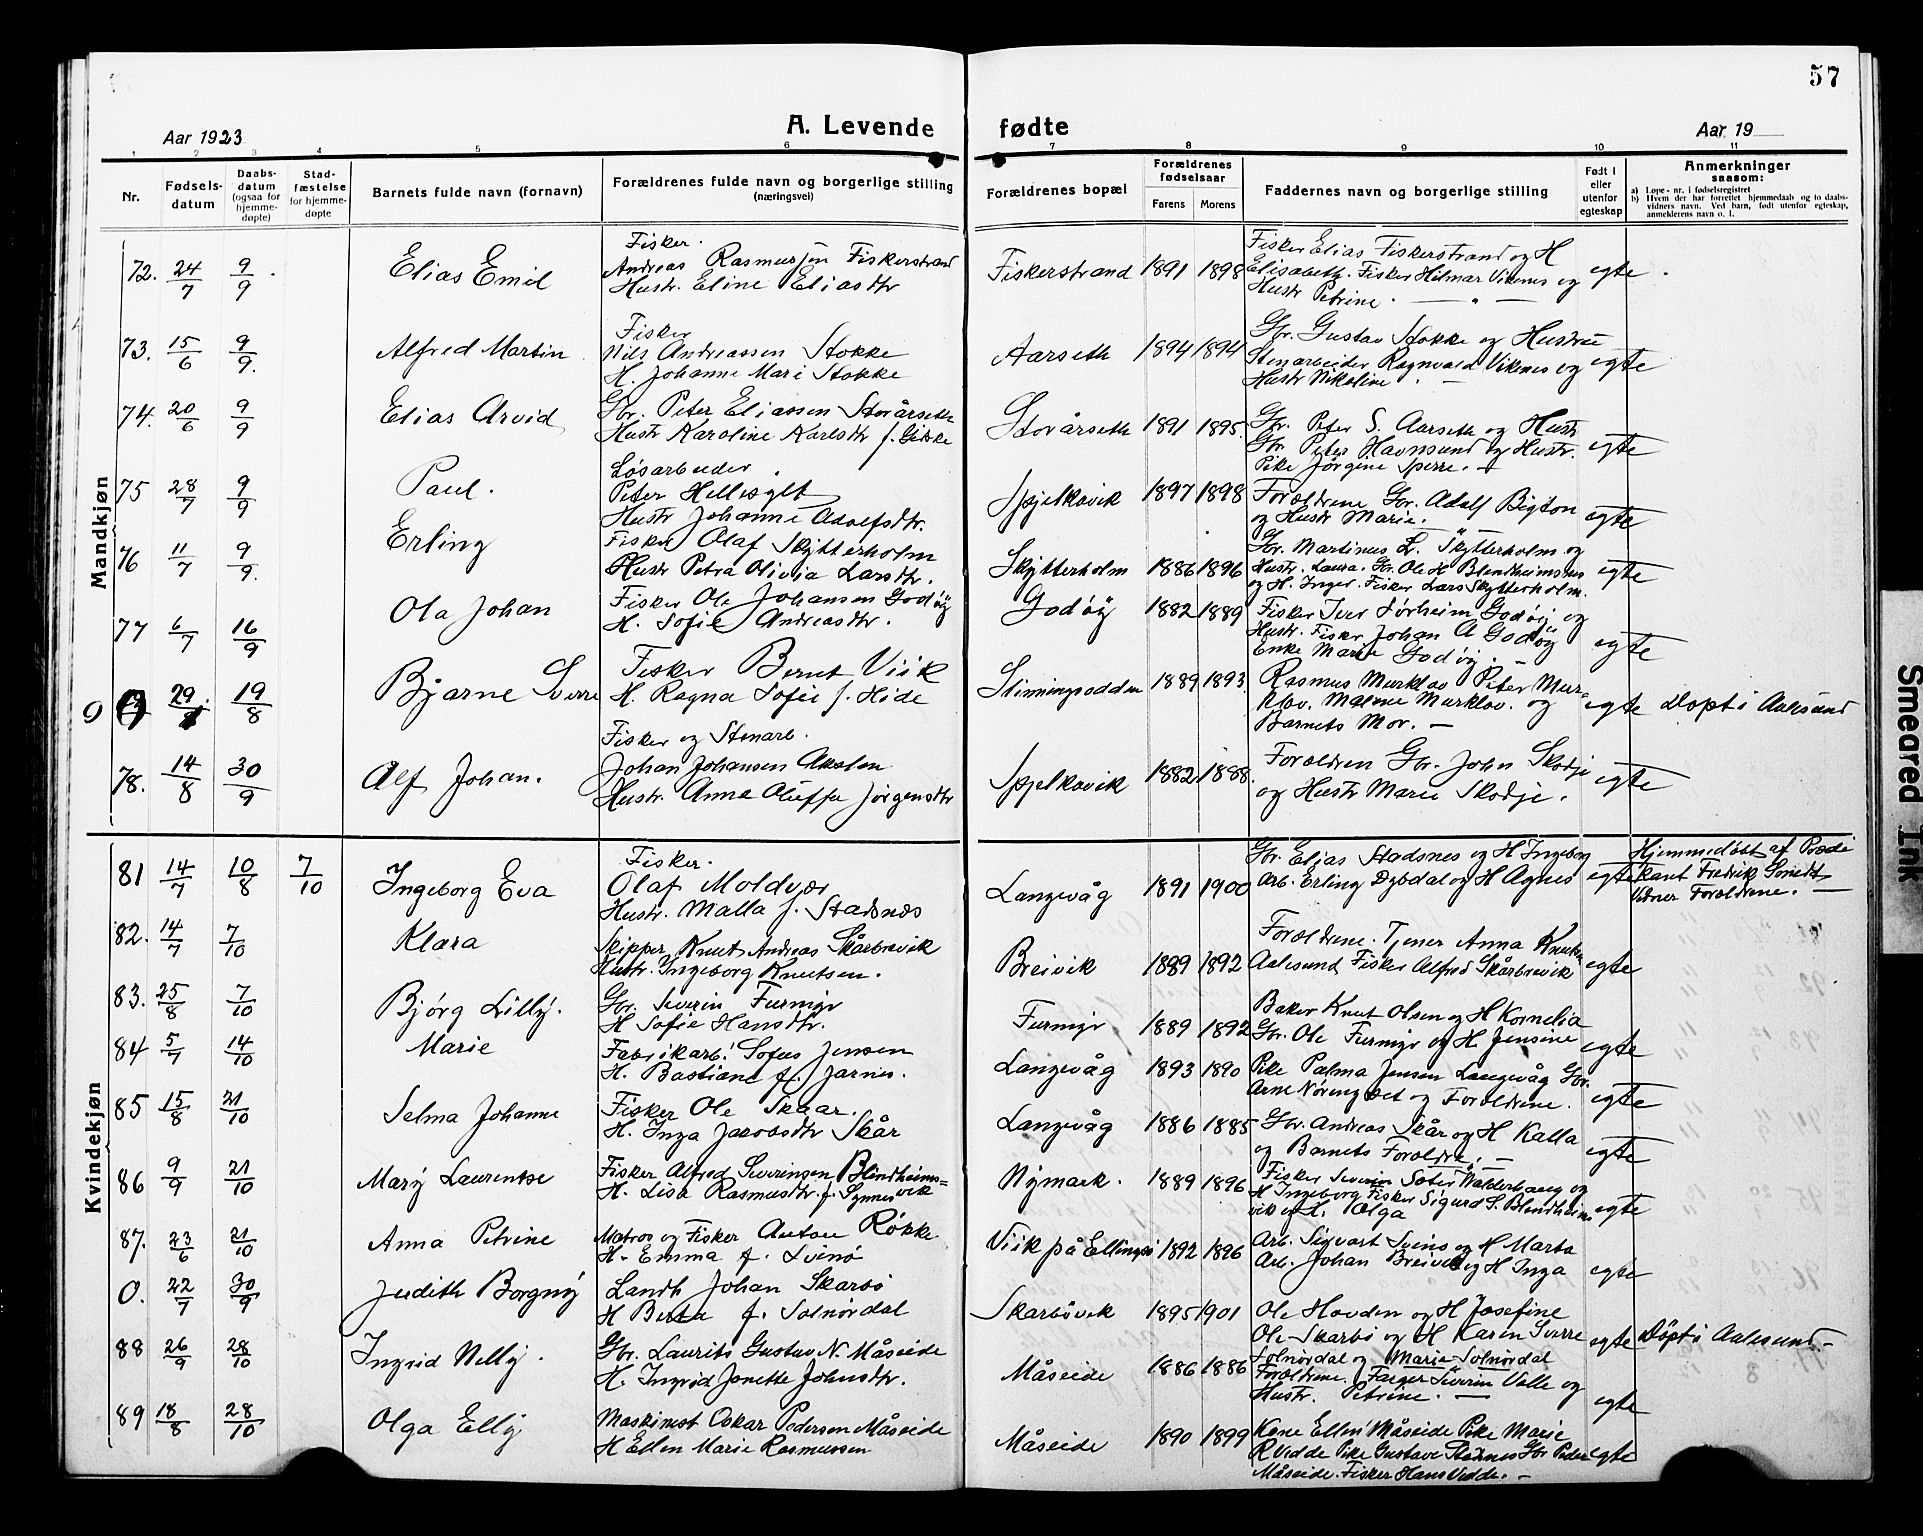 57
Aar 1923
A. Levende
fødte
Aar 19
1 2 3 4 5 6 7 8 9 10 11
Nr.
Fødsels-
datum
Daabs-
datum
(ogsaa for
hjemme-
døpte)
Stad-
fæstelse
for hjemme-
døpte
Barnets fulde navn (fornavn)
Forældrenes fulde navn og borgerlige stilling
(næringsvei)
Forældrenes bopæl
Forældrenes
fødselsaar
Farens Morens
Faddernes navn og borgerlige stilling
Født i
eller
utenfor
egteskap
Anmerkninger
saasom:
a) Løpe-nr. i fødselsregistret
b) Hvem der har forrettet hjemmedaab og to daabs-
vidners navn. Ved barn, født utenfor egteskap,
anmelderens navn o. l.
Mandkjøn
72. 24/7 9/9 Elias Emil
Fisker.
Andreas Rasmussen Fiskerstrand
Hustr. Eline Eliasdtr
Fiskerstrand 1891 1898
Fisker Elias Fiskerstrand og H
Elisabeth. Fisker Hilmar Vikenes og
Hustr Petrine. — " —
egte
73. 15/6 9/9. Alfred Martin
Fisker
Nils Andreassen Stokke
H. Johanne Mari Stokke
Aarseth 1894 1894
Gbr. Gustav Stokke og Hustru
Stenarbeider Ragnvald Vikenes og
Hustr Nikoline. —
egte
74. 20/6 9/9 Elias Arvid
Gbr. Peter Eliassen Storårseth
Hustr Karoline Karlsdtr f. Giske
Storårseth 1891 1895.
Gbr. Peter S. Aarseth og Hustr
Gbr. Peter Havnsund og Hustr.
Pike Jørgine Sperre. —
egte
75 28/7 9/9 Paul.
Løsarbeider.
Peter Hellesylt
Hustr Johanne Adolfsdtr.
Spjelkavik 1897 1898
Foroldrene Gbr. Adolf Bigton
og Hustr Marie. — " —
egte
76 11/7 9/9. Erling
Fisker Olaf Skytterholm
Hustr Petra Olivia Larsdtr.
Skytterholm 1886 1896
Gbr. Martinus L. Skytterholm og
Hustr. Laura. Gbr. Ole H Blendheimsnes
og H. Inger. Fisker Lars Skytterholm.
egte
77 6/7 16/9 Ola Johan
Fisker Ole Johansen Godøy
H. Sofie Andreasdtr.
Godøy 1882 1889
Fisker Iver Dørheim Godøy og
Hustr. Fisker Johan A Godøy
Enke Marie Godøy. —
egte
0 29 19/8 Bjarne Sverre
Fisker Bernt Viik
H. Ragna Sofie f. Hide
1889 1893
Rasmus Murkløv Peter Mur-
kløv. Malene Murkløv. og
Barnets Mor. —
egte Døpt i Aalesund
78. 14/8 30/9 Alf Johan.
Fisker og Stenarb.
Johan Johansen
Hustr. Anna Oluffa Jørgensdtr
Spjelkavik 1882 1888.
Foroldren Gbr. John Skodje
og Hustr Marie Skodje.
egte
Kvindekjøn
81 14/7 10/8 7/10 Ingeborg Eva
Fisker.
Olaf Moldvær
Hustr. Malla f. Stadsnes
Langevåg 1891 1900
Gbr. Elias Stadsnes og H Ingeborg
Arb. Erling Dybdal og H Agnes
egte
Hjemmedøbt af Prædi
kant Fredrik Smedt
Vidner Foroldrene. —
82. 14/7 7/10 Klara
Skipper Knut Andreas Skårbrevik
Hustr. Ingeborg Knutsen.
Breivik 1889 1892
Foroldrene. Tjener Anna Knutsen
Aalesund Fisker Alfred Skårbreivik
egte
83. 25/8 7/10 Bjørg Lilly.
Gbr. Severin Furmyr
H Sofie Hansdtr.
Furmyr 1889 1892
Baker Knut Olsen og H Kornelia
Gbr. Ole Furmyr og H. Jensine
egte
84 5/7 14/10 Marie
Fabrikarb. Sofus Jensen
H. Bastiane f. Jarnes.
Langevåg 1893 1890
Pike Palma Jensen Langevåg Gbr.
Arne Nørengset og Foroldrene.
egte
85 15/8 21/10 Selma Johanne
Fisker Ole Skaar.
H. Inga Jacobsdtr Skår
Langevåg 1886 1885
Gbr. Andreas Skår og H Kalla
og Barnets Foroldre. —
egte
86 9/9 21/10 Mary Laurentse
Fisker Alfred Severinsen Blindheims=
H. Lisa Rasmusdtr. f. Synnes vik
Nymark. 1889 1896
Fisker Severin Sæter Valderhaug og
H Ingeborg Fisker Sigurd S. Blendheims
vik og H. Olga
egte
87. 23/6 21/10 Anna Petrine
Matros og Fisker Anton Røkke
H. Emma f. Svinø
Viik på Ellingsø 1892 1896
Arb. Sigvart Svinø og H Marta
Arb. Johan Breivik og H Inga
egte
0. 22/7 30/9 Judith Borgny
Landh Johan Skarbø
H Berta f. Solnørdal
Skarbøvik 1895 1901
Ole Hovden og H Josefine
Ole Skarbø og H Karen Sverre
Solnørdal og Marie Solnørdal
egte Døpt i Aalesund —
88 26/9 28/10 Ingrid Nelly.
Gbr. Laurits Gustav N. Måseide
H. Ingrid Janette Johnsdtr.
Måseide 1886 1886
Foroldrene. Farger Severin Valle og
Hustr. Petrine. —
egte
89 18/8 28/10 Olga Elly
Maskinist Oskar Pedersen Måseide
H Ellen Marie Rasmussen
Måseide 1890 1899
Kone Ellen Måseide Pike Marie
R Vedde Pike Gustava Gbr Peder
Måseide. Fisker Hans Vedde. —
egte
Smeared Ink